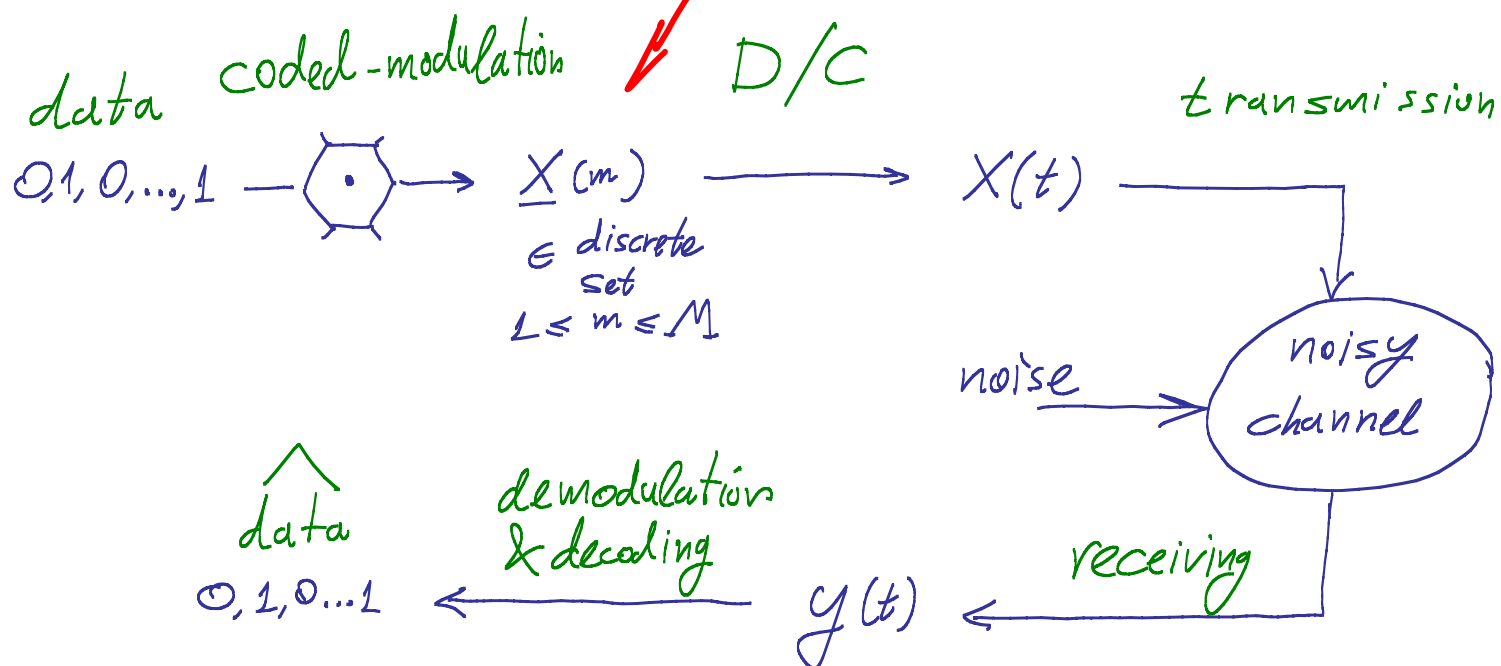 coded-modulation
D/C
data
transmission
0,1,0,...,1
X(m)
X(t)
∈ discrete
set
1 ≤ m ≤ M
noise
noisy
channel
data
demodulation
& decoding
receiving
0,1,0...1
y(t)